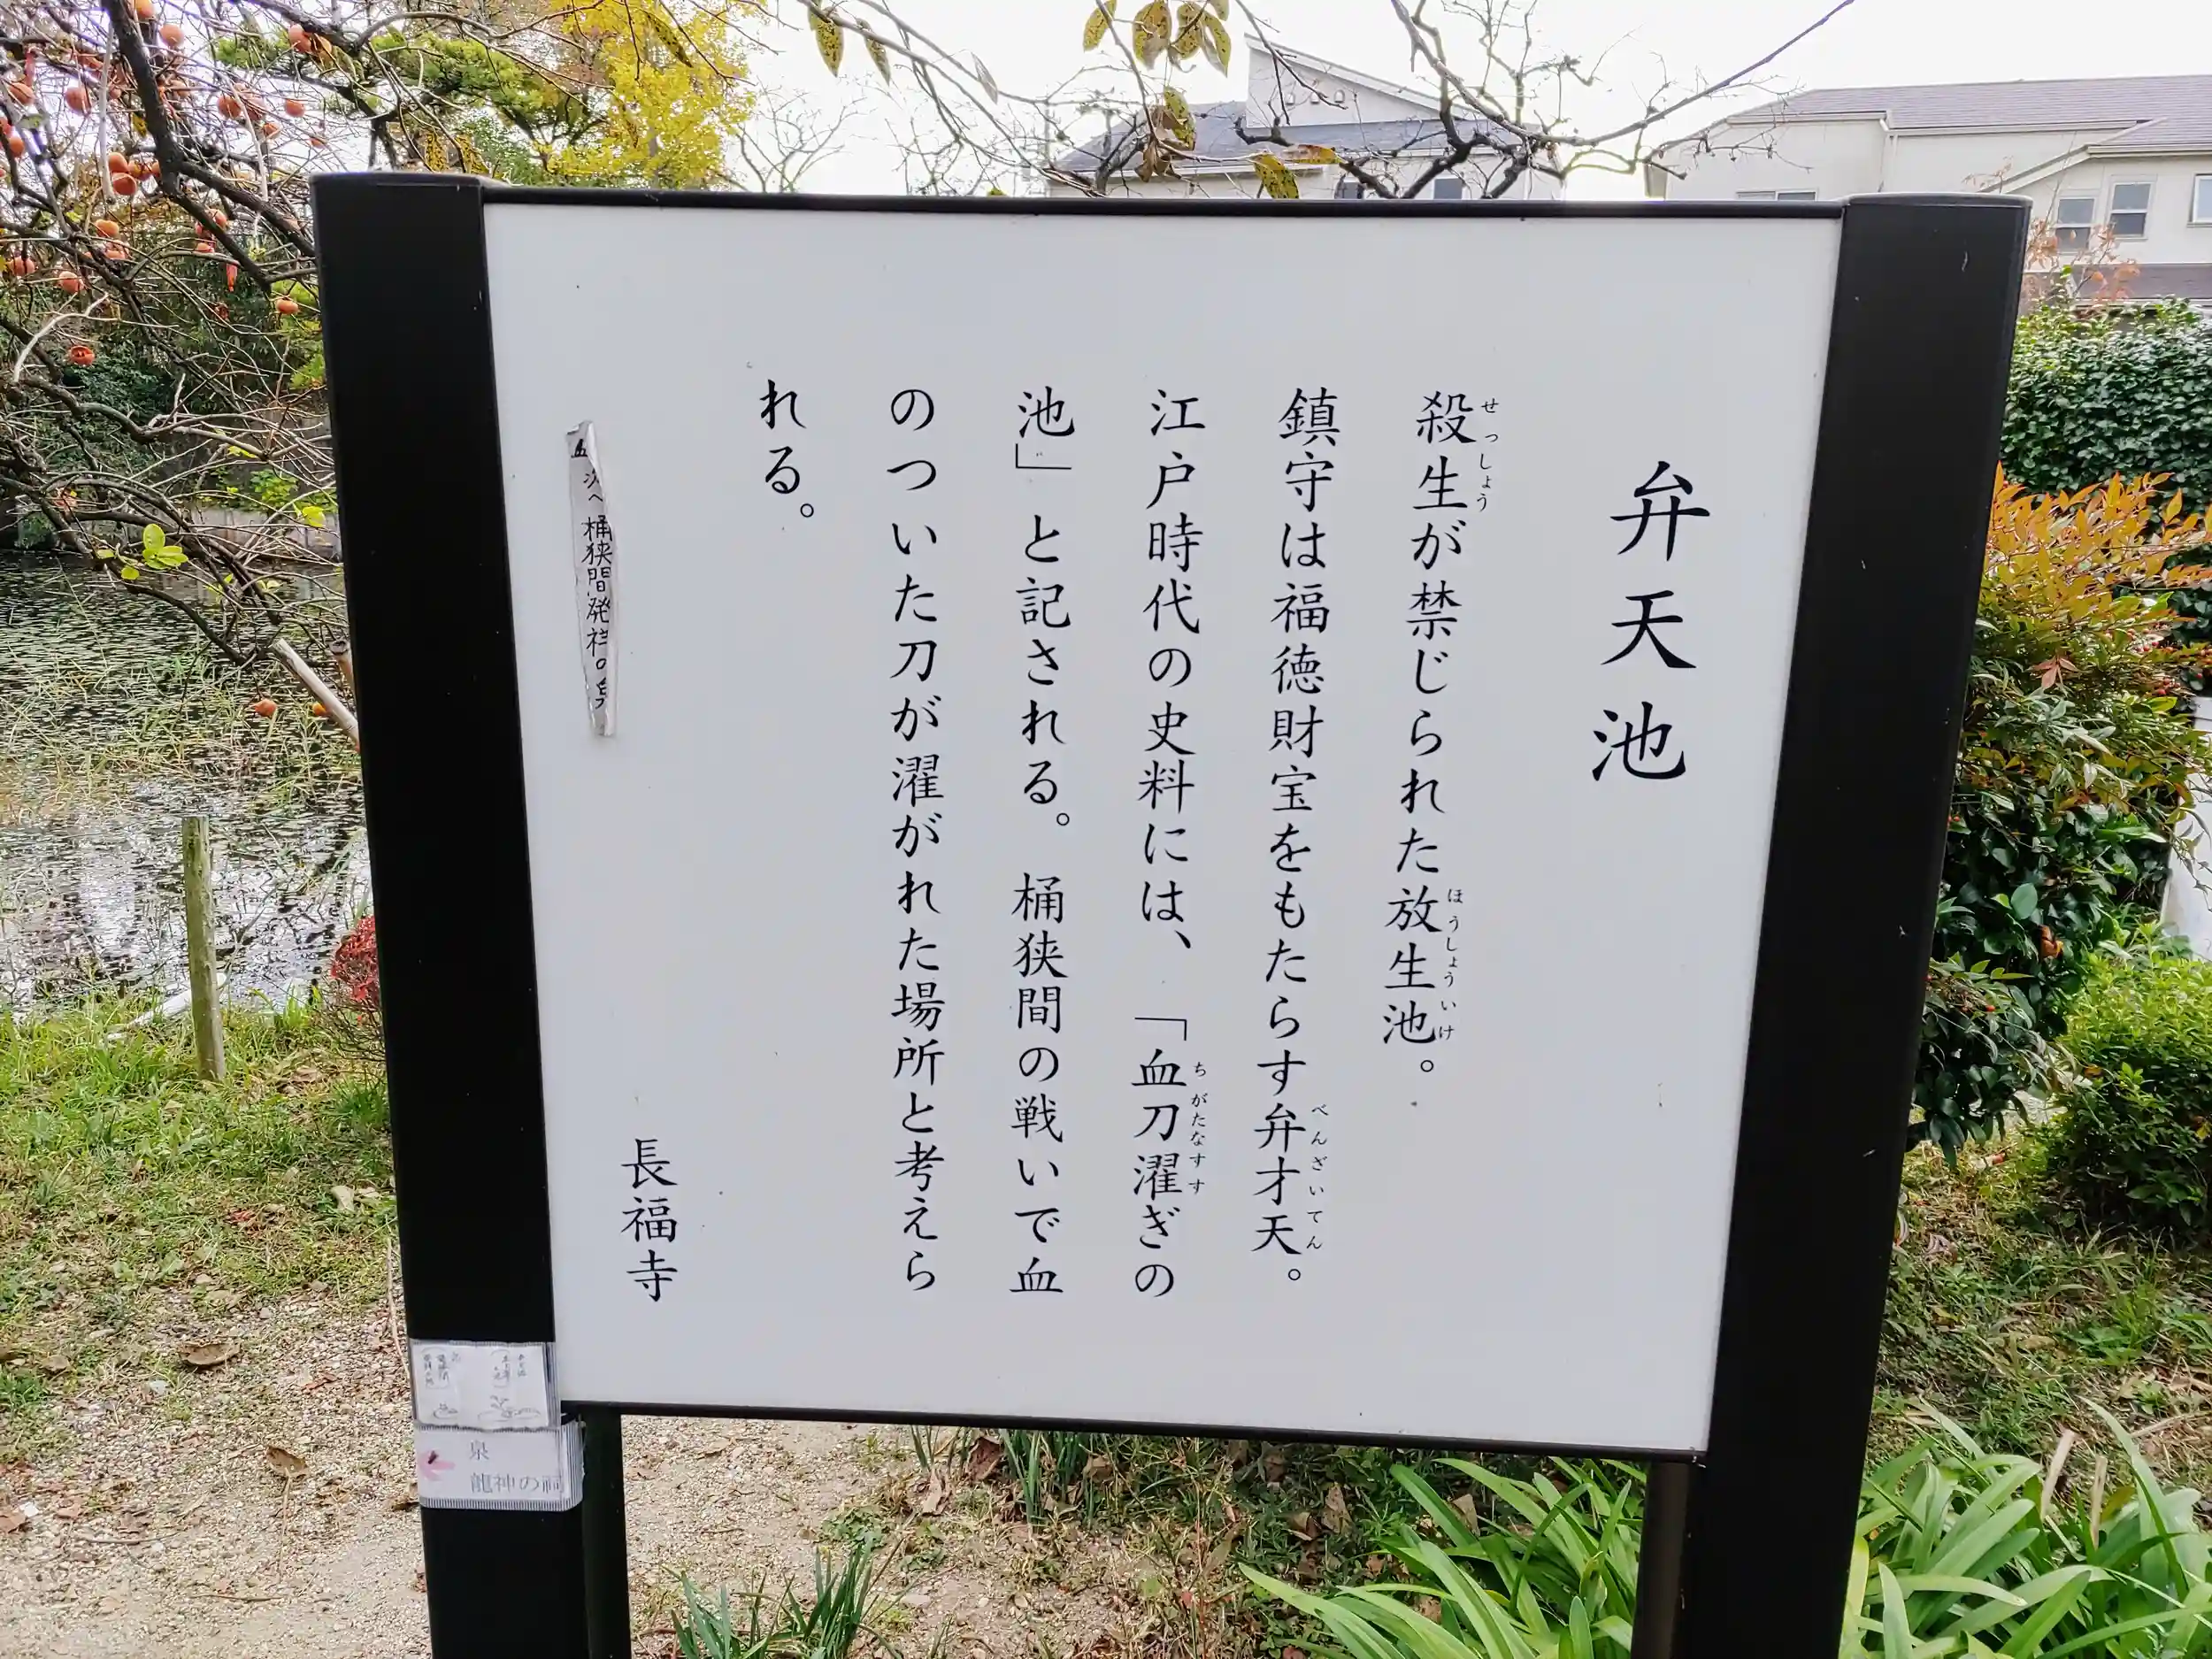 弁天池
殺生が禁じられた放生池。
せっしょう
ほうしょういけ
鎮守は福徳財宝をもたらす弁才天。
べんざいてん
江戸時代の史料には、「血刀濯ぎの
ちがたなすす
池」と記される。桶狭間の戦いで血
のついた刀が濯がれた場所と考えら
れる。
長福寺
次へ 桶狭間発祥の
泉
龍神の祠